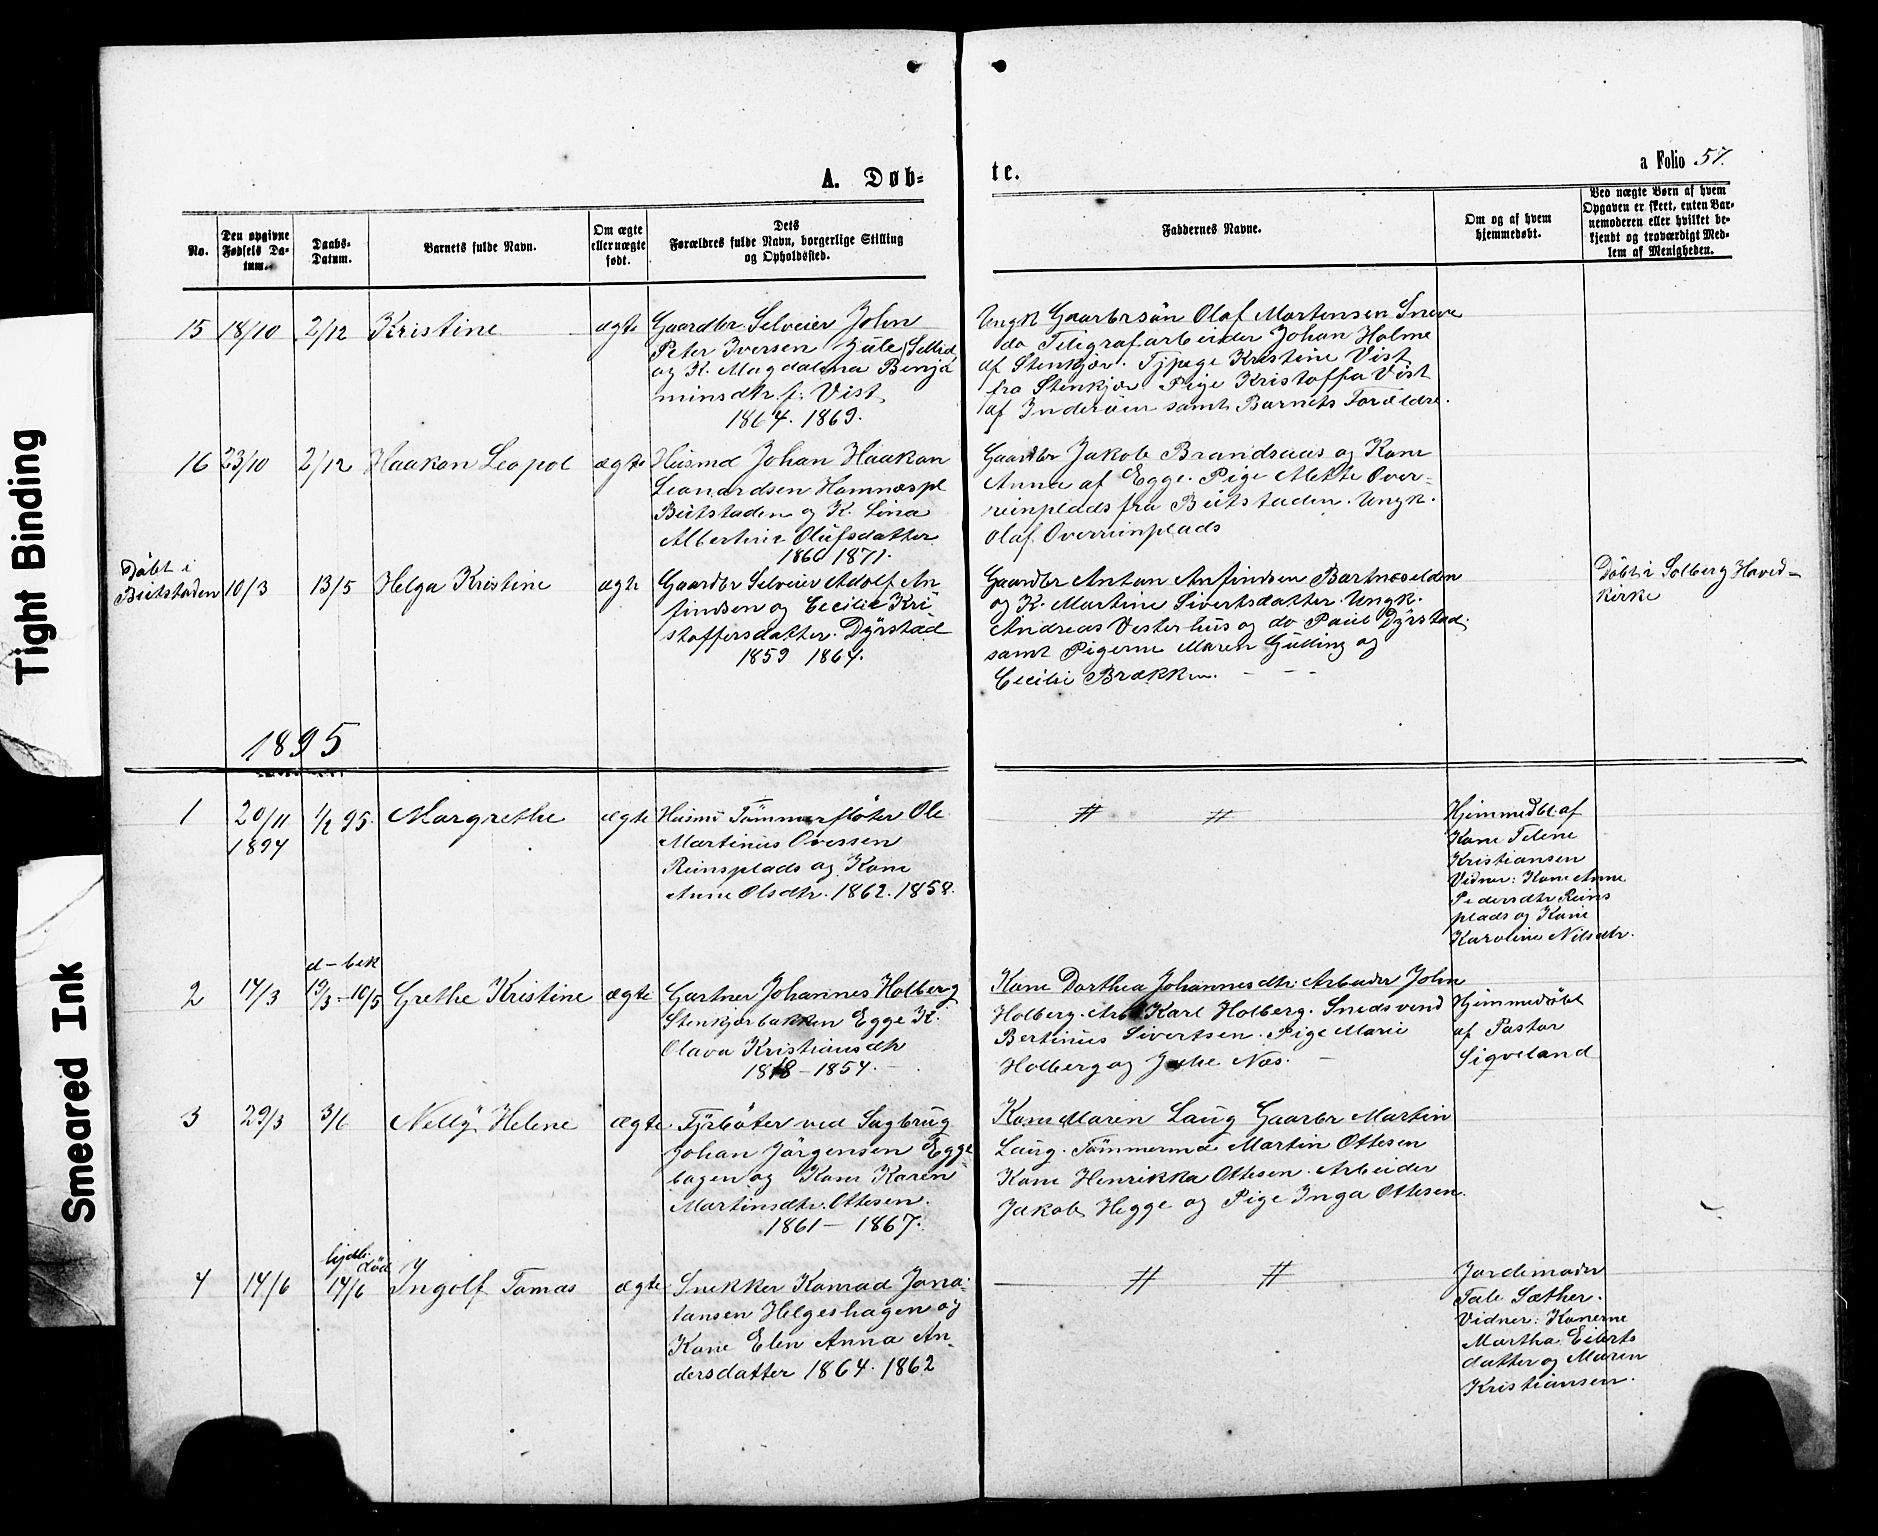 Tight Binding
Smeared Ink
A. Døb-
te.
a Folio 57.
No.
Den opgivne
Fødsels Da-
tum.
Daabs-
Datum.
Barnets fulde Navn.
Om ægte
eller uægte
født.
Dets
Forældres fulde Navn, borgerlige Stilling
og Opholdssted.
Faddernes Navne.
Om og af hvem
hjemmedøbt.
Ved uægte Børn af hvem
Opgaven er skeet, enten Bar-
nemoderen eller hvilket be-
kjendt og troværdigt Med-
lem af Menigheden.
15 18/10 2/12 Kristine ægte
Gaardbr. Selveier John
Peter Iversen
og K. Magdalena Benja
minsdtr. f. Vist
1864. 1869.
Ungk Gaarbrsøn Olaf Martensen
do Teligrafarbeider Johan Holme
af Stenkjær. Tjpige Kristine Vist
fra Stenkjær Pige Kristoffa Vist
af Inderøen samt Barnets Forældre.
16 23/10 2/12 Haakon Leopol ægte
Husmd Johan Haakon
Leonardsen Hamnæspl
Beitstaden og K. Lina
Albertine Olufsdatter
1866 1871.
Gaardbr Jakob Brandsaas og Kone
Anna af Egge. Pige Mette Over-
reinplads fra Beitstaden. Ungk.
Olaf Overreinplads
Døbt i
Beitstaden 10/3 13/5 Helga Kristine ægte
Gaardbr Selveier Adolf An
findsen og Cecilie Kri
stoffersdatter. Dÿrstad
1859 1864.
Gaardbr Anton Anfindsen Bartnæselden
og K. Martine Sivertsdatter. Ungk.
Andreas Vesterhus og do Paul Dÿrstad.
samt Pigerne Maren Gulling og
Cecilie Brækken. - - -
Døbt i Solberg Hoved-
kirke
1895
1 20/11
1894
1/2 95. Margrethe ægte
Husmd Tömmerfløter Ole
Martinus Ovessen
Reinsplads og Kone
Anne Olsdtr. 1862. 1858.
# #
Hjemmedbt af
Kone Telene
Kristiansen
Vidner: Kone Anne
Pedersdtr Reins
plads og Kone
Karoline Nilsdtr.
d- bek
2 17/3 19/3-10/5 Grethe Kristine ægte
Gartner Johannes Holberg
Stenkjærbakken Egge K.
Olava Kristiansdtr
1848-1854.
Kone Dorthea Johannesdtr. Arbeider John
Holberg. Arb Karl Holberg. Snedsvend
Bertinus Sivertsen. Pige Marie
Holberg og Julie Næs. -
Hjemmedøbt
af Pastor
Sigveland
3 29/3 3/6 Nellÿ Helene ægte
Fÿrbøter ved Sagbrug
Johan Jørgensen Egge
bagen og Kone Karen
Martinsdtr. Ottesen.
1861 - 1867.
Kone Maren Laug Gaarbr Martin
Laug. Tömmermd Martin Ottesen
Kone Henrikka Ottesen. Arbeider
Jakob Hegge og Pige Inga Ottesen.
død
4 14/6 14/6 Ingolf Tomas ægte
Snekker Konrad Jona-
tansen Helgeshagen og
Kone Elen Anna An-
dersdatter 1864. 1862
# #
Jordemoder
Tale Sæther.
Vidner: Konerne
Martha Eilerts
datter og Maren
Kristiansen.